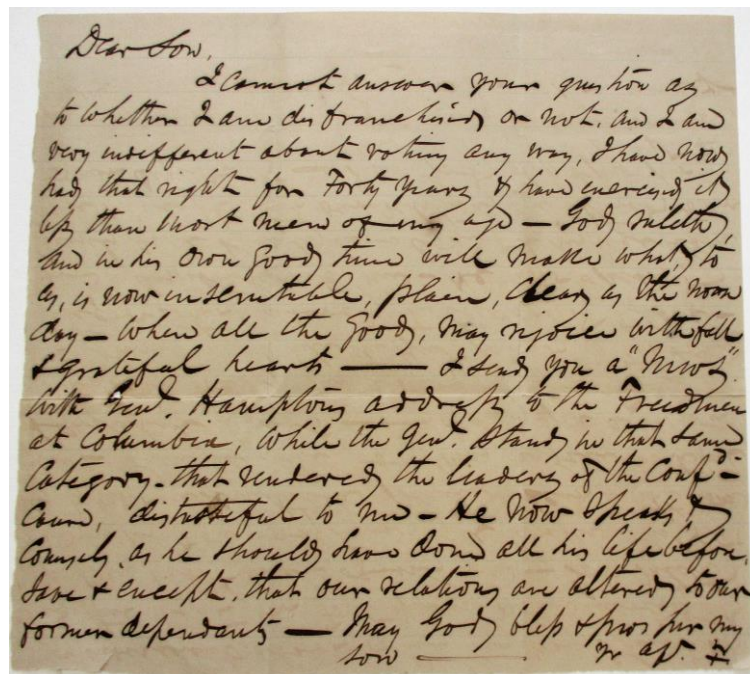 Dear Son,
I cannot answer your question as
to whether I am disfranchised or not. and I am
very indifferent about voting any way, I have now
had that right for Forty years & have exercised it
less than most men of my age — God ruleth,
and in his own good time will make what, to
us, is now inscrutable, plain, clear as the noon
day — when all the good, may rejoice with full
& grateful hearts — I send you a "News"
with Genl. Hamptons address to the Freedmen
at Columbia, while the Genl. stands in that same
Category - that rendered the leaders of the Confd -
Cause, distasteful to me - He now speaks &
Counsels, as he should have done all his life before,
save & except, that our relations are altered to our
former dependants — May God bless & prosper my
son — yr aft.